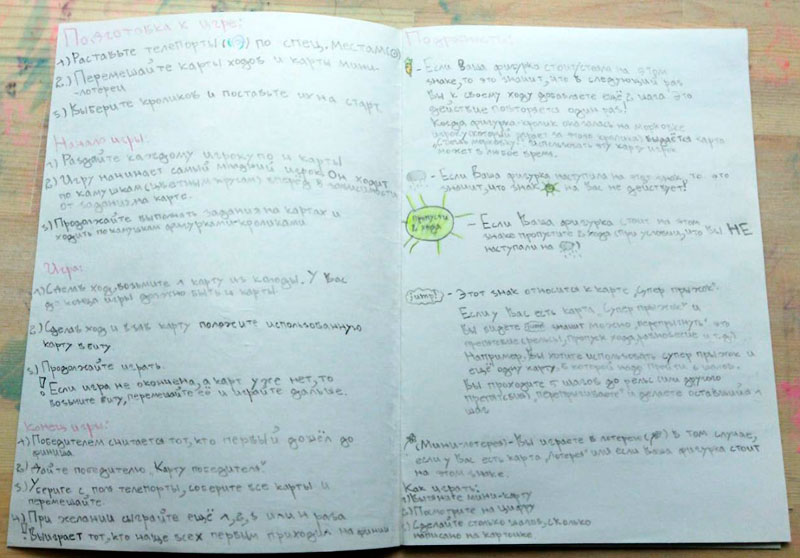 Подготовка к игре:
1) Раставьте телепорты ( ) по спец. местам
2.) Перемешайте карты ходов и карты мини-
-лотереи
3) Выберите кроликов и поставьте их на старт.
Начало игры:
1) Раздайте каждому игроку по 4 карты
2) Игру начинает самый младший игрок. Он ходит
по камушкам (цветным кругам) вперёд в зависимости
от задания на карте.
3) Продолжайте выполнять задания на картах и
ходить по камушкам фигурками-кроликами
Игра:
1) Сделав ход, возьмите 1 карту из колоды. У Вас
до конца игры должно быть 4 карты
2) Сделав ход и взяв карту положите использованную
карту в биту
3) Продолжайте играть.
! Если игра не окончена, а карт уже нет, то
возьмите биту, перемешайте её и играйте дальше.
Конец игры:
1) Победителем считается тот, кто первый дошёл до
финиша
2) Дайте победителю "Карту победителя"
3) Уберите с поля телепорты, соберите все карты и
перемешайте.
4) При желании сыграйте ещё 1, 2, 3 или 4 раза
! Выиграет тот, кто чаще всех первым приходил на финиш
Подробности:
- Если Ваша фигурка стоит/стала на этом
знаке, то это значит, что в следующий раз
Вы к своему ходу добавляете ещё 2 шага. Это
действие повторяется один раз!
Когда фигурка-кролик оказалась на морковке
игроку, который играет за этого кролика) выдаётся карта
"Съешь морковку". Использовать эту карту игрок
может в любое время.
- Если Ваша фигурка наступала на этот знак, то это
значит, что знак на Вас не действует!
Пропусти
2 хода
- Если Ваша фигурка стоит на этом
знаке пропустите 2 хода (при условии, что Вы НЕ
наступали на )
Jump! - Этот знак относится к карте "Супер прыжок".
Если у Вас есть карта "Супер прыжок" и
Вы видете Jump значит можно "перепрыгнуть" это
препятствие (рельсы, пропуск хода, и т.д.)
Например: Вы хотите использовать супер прыжок и
ещё одну карту, в которой надо пройти 6 шагов.
Вы проходите 5 шагов до рельс (или другого
препятствия), "перепрыгиваете" и делаете оставшийся 1
шаг
(Мини-лотерея) - Вы играете в лотерею ( ) в том случае,
если у Вас есть карта "Лотерея" или если Ваша фигурка стоит
на этом знаке.
Как играть:
1) Вытяните мини-карту
2) Посмотрите на цифру
3) Сделайте столько шагов, сколько
написано на карточке